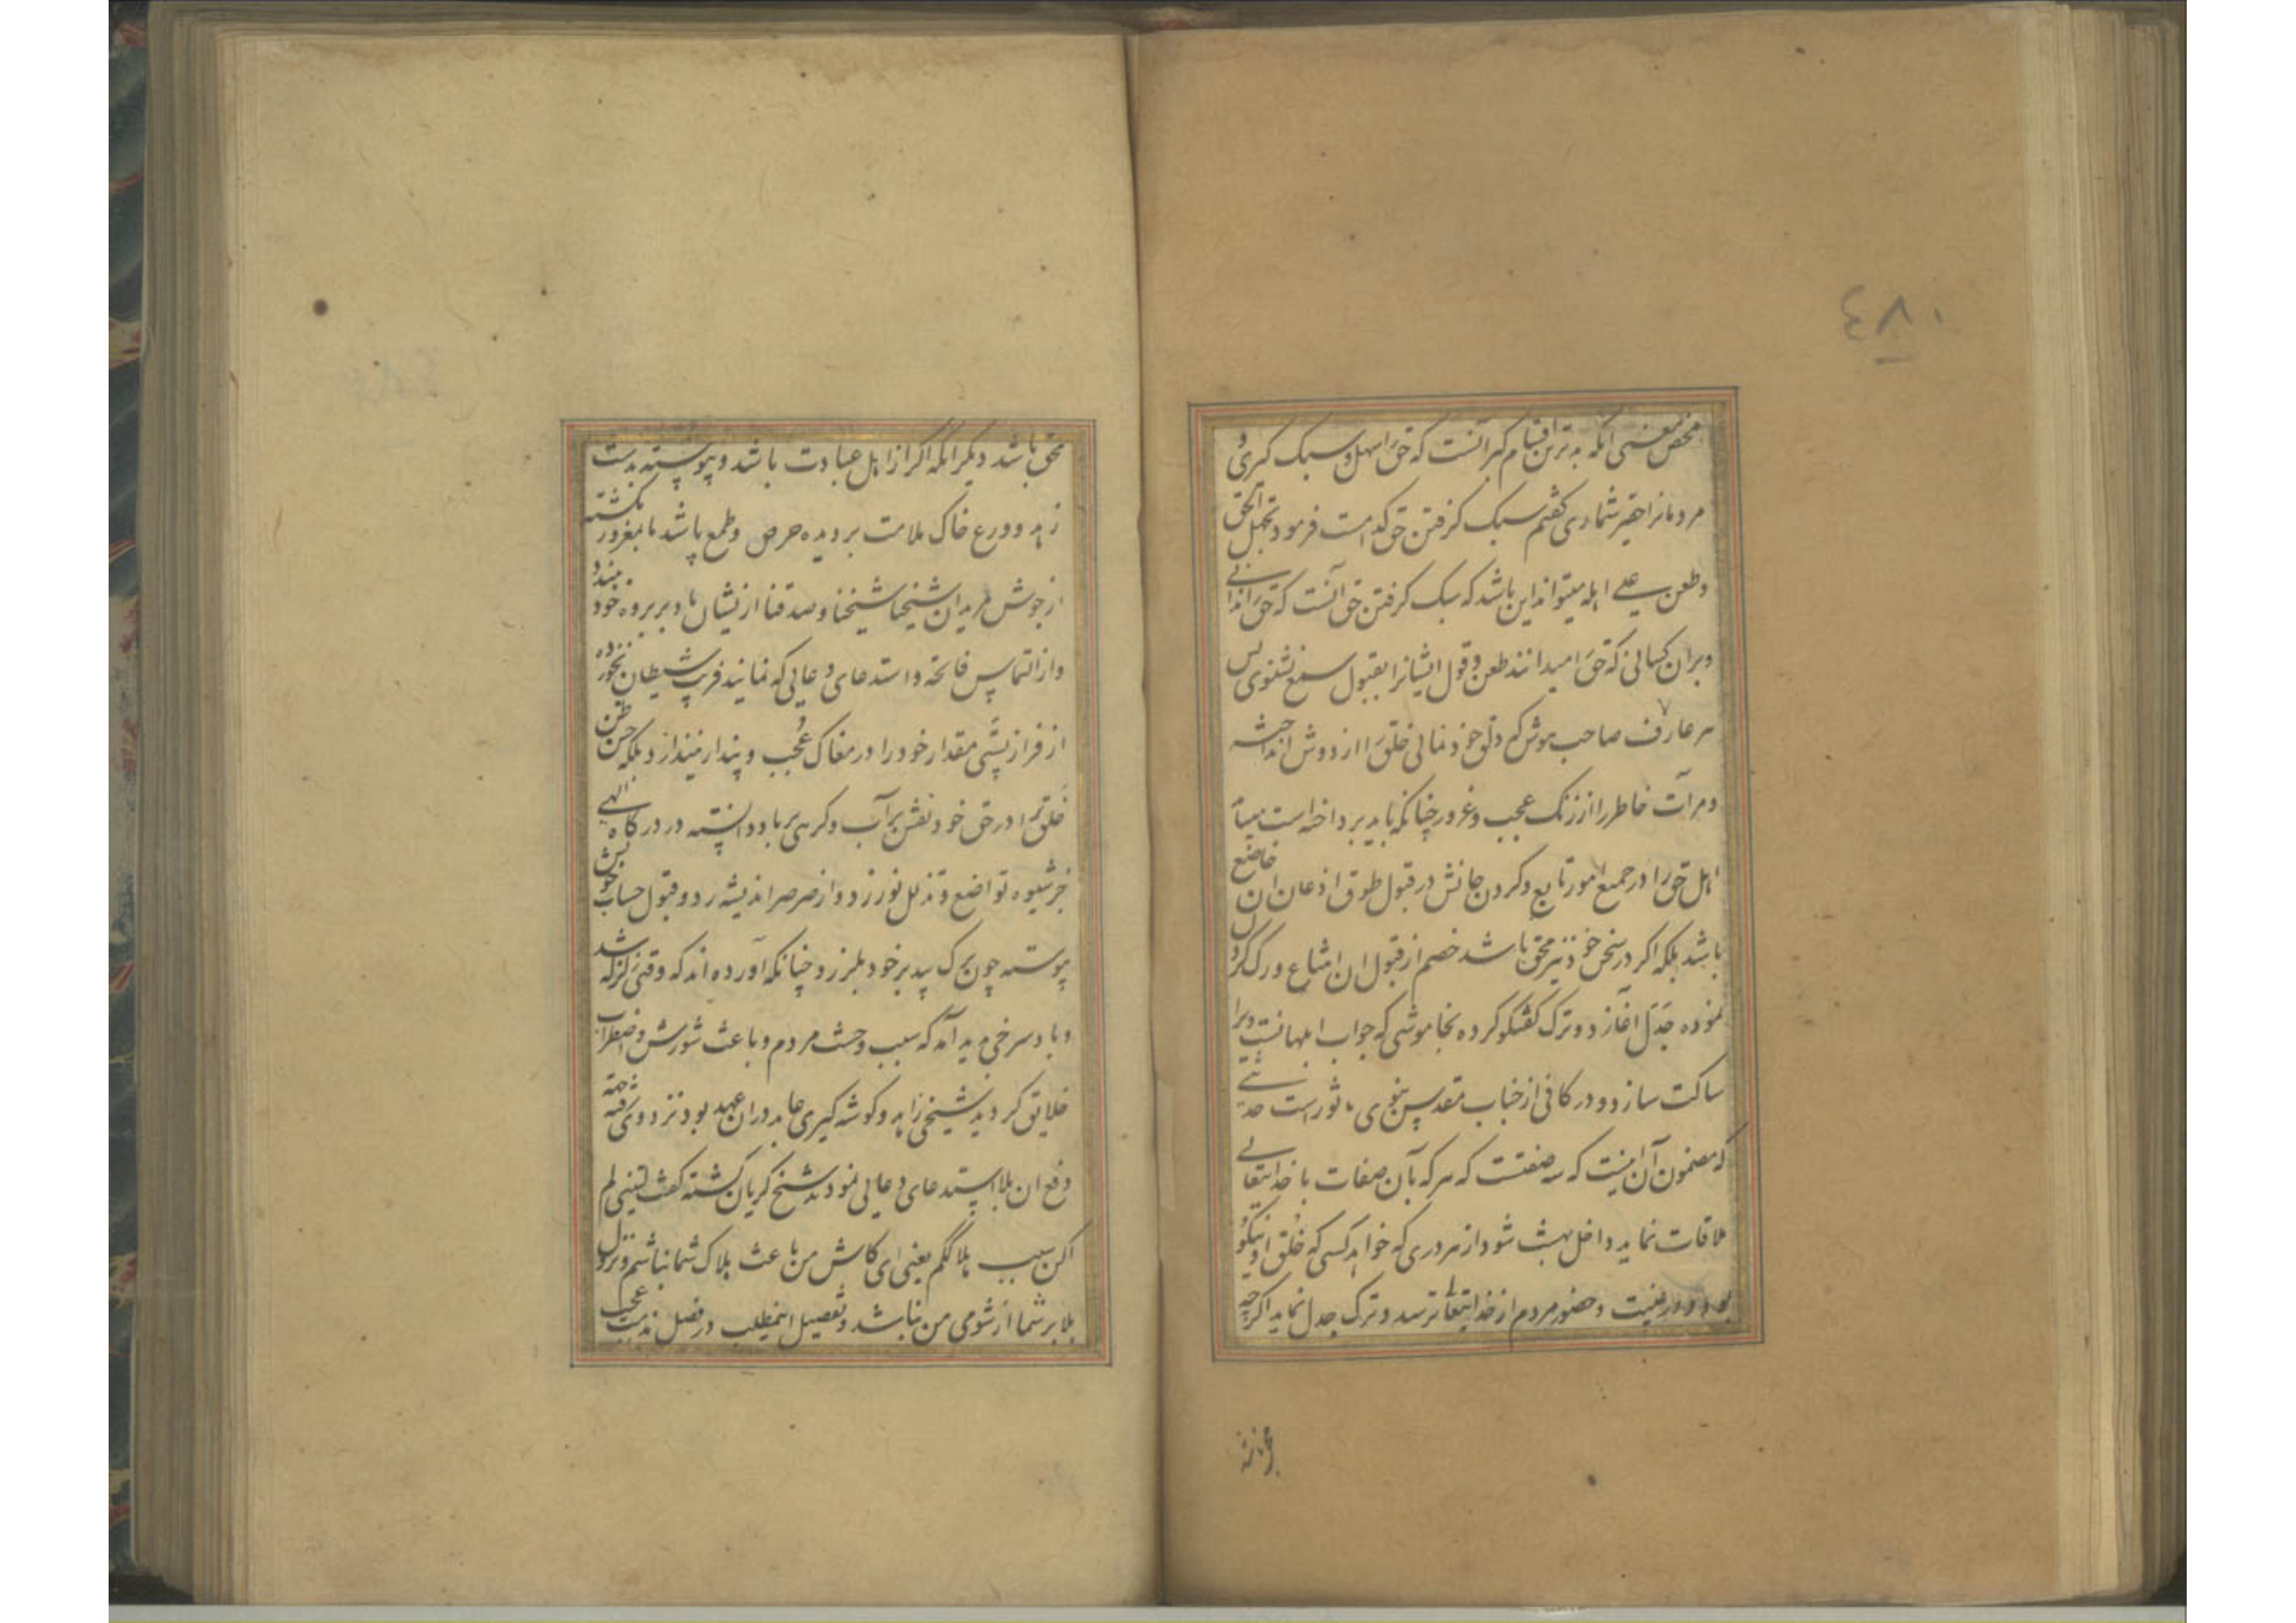 ٤٨٠
محض معنی انکه بدترین اقسام کبر آنست که حق را سهل و سبک کیری و
مردمانرا حقیر شماری کفتم سبک کرفتن حق کدامست فرمود تجهل الحق
وطعن علی اهله میتواند این باشد که سبک کرفتن حق آنست که حق را ندانی
وبران کسانی که حق را میدانند طعن وقول ایشانرا بقبول سمع نشنوی پس
هر عارف صاحب هوش که دلق خودنمائی خلق را از دوش انداخته
ومرآت خاطر را از زنک عجب وغرور چنانکه باید پرداخته است میباید
اهل حق را در جمیع امور تابع وکردن جانش در قبول طوق اذعان ان خاضع
باشد بلکه اکر در سخن خود نیز محق باشد خصم از قبول ان امتناع ورک کردن
نموده جدل آغازد وترک کفتکو کرده بخاموشی که جواب ابلهانست ویرا
ساکت سازد ودر کافی از جناب مقدس نبوی ماثور است حدیثی
که مضمون آن اینست که سه صفتست که هر که بآن صفات با خدایتعالی
ملاقات نماید داخل بهشت شود از هر دری که خواهد کسی که خلق او نیکو
بود ودر غیبت وحضور مردم از خدایتعالی ترسد وترک جدل نماید اکرچه
محق باشد دیکر انکه اکر از اهل عبادت باشد وپیوسته بدست
زهد وورع خاک ملامت بر دیده حرص وطمع پاشد بامغرور نکشته
از جوش مریدان شیخنا شیخنا وصدقنا از نیشان باد بر بروه خود نبندد
واز التماس فاتحه واستدعای دعایی که نمایند فریب شیطان نخورده
از فراز پستی مقدار خود را در مغاک عجب وپندار نیندازد وبلکه حسن ظن
خلق را در حق خود نقش بر آب وکرهی بر باد دانسته در درکاه الهی
جز شیوه تواضع وتذلل نورزد واز صرصر اندیشه رد وقبول حساب خویش
پیوسته چون برک بید بر خود بلرزد چنانکه آورده اند که وقتی زلزله شد
وباد سرخی پدید آمد که سبب وحشت مردم وباعث شورش واضطراب
خلایق کردید شیخی زاهد وکوشه کیری عابد در ان عهد بود نزد وی رفته جهة
دفع ان بلا استدعای دعایی نمودند شیخ کریان کشته کفت لیتنی لم
اکن سبب هلاککم یعنی ای کاش من باعث هلاک شما نباشم ونزول
بلا بر شما از شومی من نباشد وتفصیل اینمطلب در فصل مذمت عجب